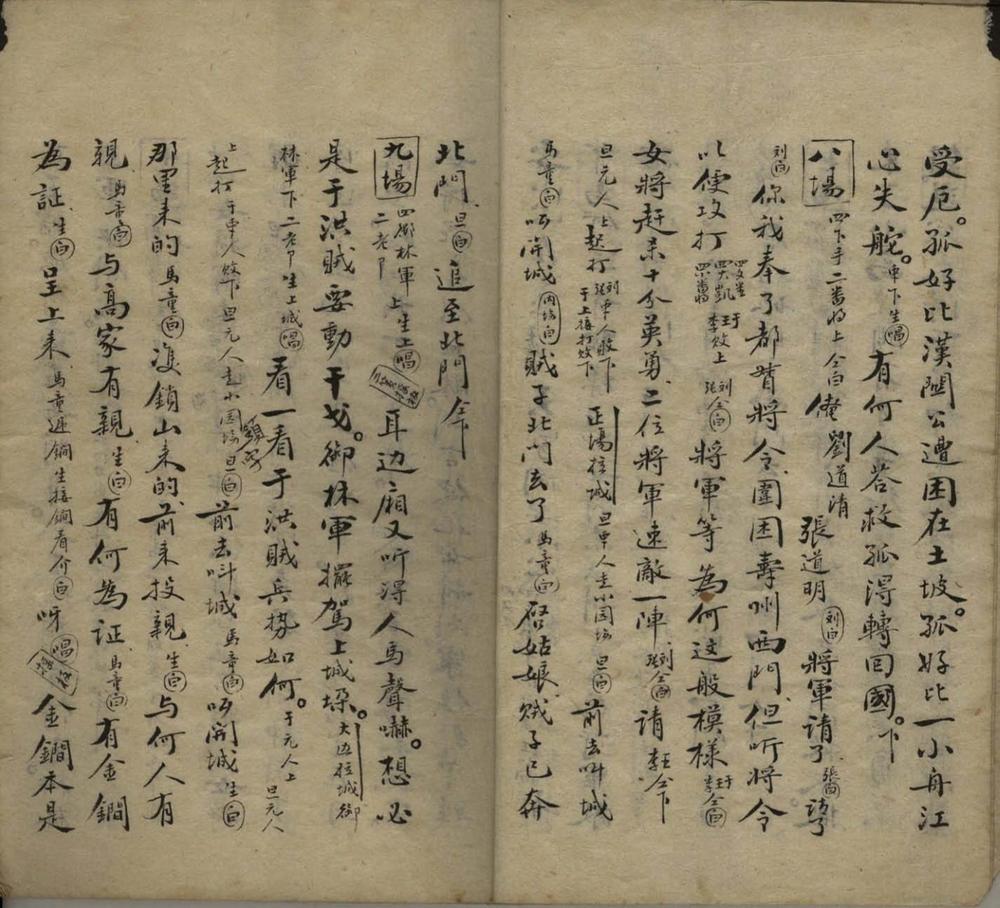 受厄。孤好比漢關公遭困在土坡。孤好比一小舟江
心失舵。申下生唱有何人荅救孤得轉回國。下
八場 四下手二番將上仝白俺劉道清張道明劉白將軍請了張白請了
劉白你我奉了都督將令圍困壽州西門但听將令
以便攻打李王于敗上張劉仝白將軍等為何這般模樣李王于仝白
女將赶杀十分英勇二位將軍速敵一陣張劉仝白請李王仝下
旦元人上起打張劉申人敗下于上接打敗下正場拉城旦申人走小园場旦白前去叫城
馬童白呔開城内场白賊子北門去了馬童白启姑娘賊子已奔
北門旦白追至北門仝下
九場 四御林軍二老卩上生上唱耳边廂又听得人馬聲嚇。想必
是于洪賊要動干戈。御林軍擺駕上城垛。大边拉城御
林軍下二老卩生上城唱看一看于洪賊兵势如何。于元人上旦元人
上起打于申人敗下旦元人走小园場旦白前去叫城馬童白呔開城生白
那里来的馬童白双鎖山来的前来投親生白与何人有
親馬童白与高家有親生白有何為证馬童白有金鐧
為証生白呈上来馬童遞鐧生接鐧看介白呀唱金鐧本是